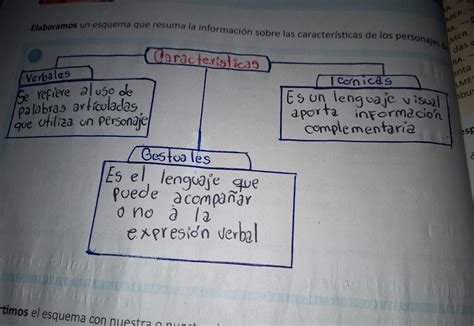 Elaboramos un esquema que resuma la información sobre las características de los personajes
Características
Verbales
Se refiere al uso de
palabras articuladas
que utiliza un personaje
Iconicas
Es un lenguaje visual
aporta información
complementaria
Gestuales
Es el lenguaje que
puede acompañar
o no à la
expresión verbal
el esquema con nuestra o